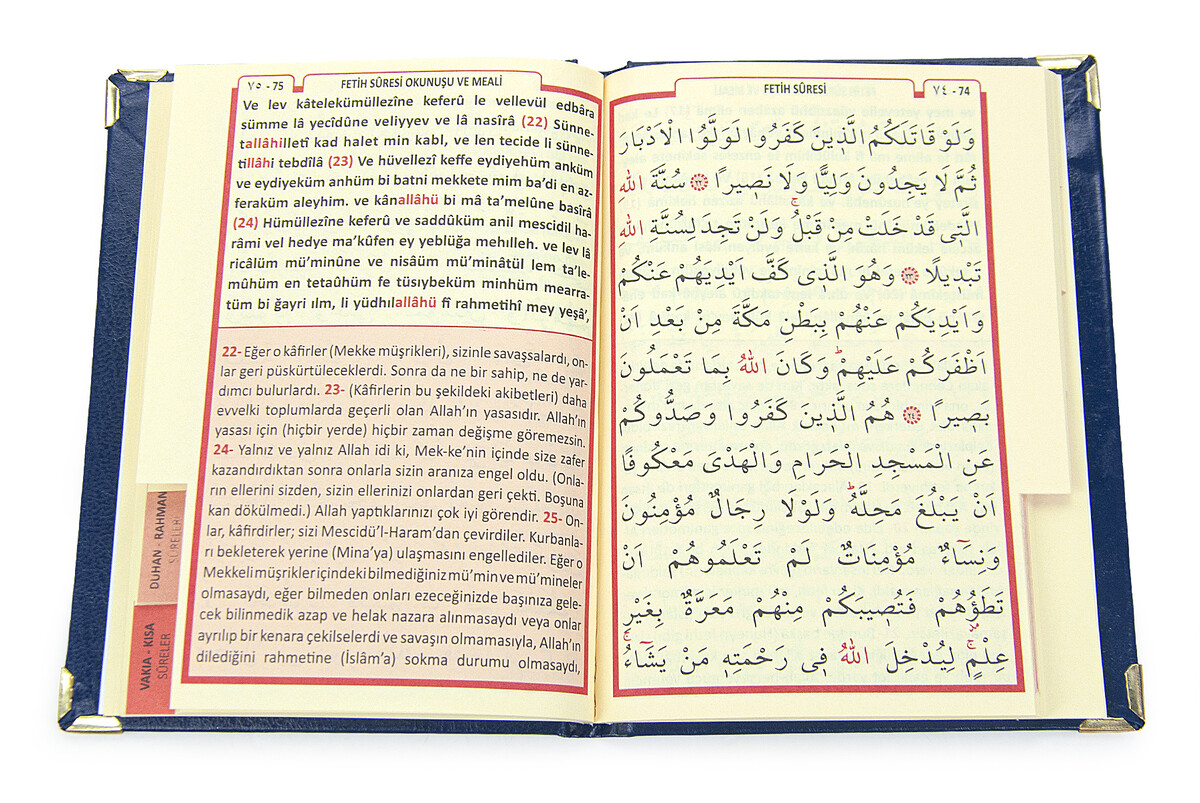 ٧٥ - 75
FETİH SÛRESİ OKUNUŞU VE MEALİ
Ve lev kâtelekümüllezîne keferû le vellevül edbâra
sümme lâ yecîdûne veliyyev ve lâ nasîrâ (22) Sünne-
tallâhilletî kad halet min kabl, ve len tecide li sünne-
tillâhi tebdîlâ (23) Ve hüvellezî keffe eydiyehüm anküm
ve eydiyeküm anhüm bi batni mekkete mim ba’di en az-
feraküm aleyhim. ve kânallâhü bi mâ ta’melûne basîrâ
(24) Hümüllezîne keferû ve saddûküm anil mescidil ha-
râmi vel hedye ma’kûfen ey yeblüğa mehılleh. ve lev lâ
ricâlüm mü’minûne ve nisâüm mü’minâtül lem ta’le-
mûhüm en tetaûhüm fe tüsıybeküm minhüm mearra-
tüm bi ğayri ılm, li yüdhılallâhü fî rahmetihî mey yeşâ’,
22- Eğer o kâfirler (Mekke müşrikleri), sizinle savaşsalardı, on-
lar geri püskürtüleceklerdi. Sonra da ne bir sahip, ne de yar-
dımcı bulurlardı. 23- (Kâfirlerin bu şekildeki akibetleri) daha
evvelki toplumlarda geçerli olan Allah’ın yasasıdır. Allah’ın
yasası için (hiçbir yerde) hiçbir zaman değişme göremezsin.
24- Yalnız ve yalnız Allah idi ki, Mek-ke’nin içinde size zafer
kazandırdıktan sonra onlarla sizin aranıza engel oldu. (Onla-
rın ellerini sizden, sizin ellerinizi onlardan geri çekti. Boşuna
kan dökülmedi.) Allah yaptıklarınızı çok iyi görendir. 25- On-
lar, kâfirdirler; sizi Mescidü’l-Haram’dan çevirdiler. Kurbanla-
rı bekleterek yerine (Mina’ya) ulaşmasını engellediler. Eğer o
Mekkeli müşrikler içindeki bilmediğiniz mü’min ve mü’mineler
olmasaydı, eğer bilmeden onları ezeceğinizde başınıza gele-
cek bilinmedik azap ve helak nazara alınmasaydı veya onlar
ayrılıp bir kenara çekilselerdi ve savaşın olmamasıyla, Allah’ın
dilediğini rahmetine (İslâm’a) sokma durumu olmasaydı,
DUHAN - RAHMAN
SÛRELERİ
VAKIA - KISA
SÛRELER
FETİH SÛRESİ
٧٤ - 74
وَلَوْ قَاتَلَكُمُ الَّذ۪ينَ كَفَرُوا لَوَلَّوُا الْاَدْبَارَ
ثُمَّ لَا يَجِدُونَ وَلِيًّا وَلَا نَص۪يرًا ﴿٢٢﴾ سُنَّةَ اللّٰهِ
الَّت۪ي قَدْ خَلَتْ مِنْ قَبْلُۚ وَلَنْ تَجِدَ لِسُنَّةِ اللّٰهِ
تَبْد۪يلًا ﴿٢٣﴾ وَهُوَ الَّذ۪ي كَفَّ اَيْدِيَهُمْ عَنْكُمْ
وَاَيْدِيَكُمْ عَنْهُمْ بِبَطْنِ مَكَّةَ مِنْ بَعْدِ اَنْ
اَظْفَرَكُمْ عَلَيْهِمْۜ وَكَانَ اللّٰهُ بِمَا تَعْمَلُونَ
بَص۪يرًا ﴿٢٤﴾ هُمُ الَّذ۪ينَ كَفَرُوا وَصَدُّوكُمْ
عَنِ الْمَسْجِدِ الْحَرَامِ وَالْهَدْيَ مَعْكُوفًا
اَنْ يَبْلُغَ مَحِلَّهُۜ وَلَوْلَا رِجَالٌ مُؤْمِنُونَ
وَنِسَٓاءٌ مُؤْمِنَاتٌ لَمْ تَعْلَمُوهُمْ اَنْ
تَطَؤُ۫هُمْ فَتُص۪يبَكُمْ مِنْهُمْ مَعَرَّةٌ بِغَيْرِ
عِلْمٍۚ لِيُدْخِلَ اللّٰهُ ف۪ي رَحْمَتِه۪ مَنْ يَشَٓاءُۚ